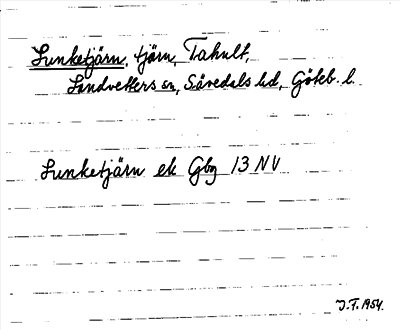 Lunketjärn, tjärn, Tahult,
Landvetters sn, Sävedals hd, Göteb. l.
Lunketjärn ek Gbg 13 NV
J.F. 1954.